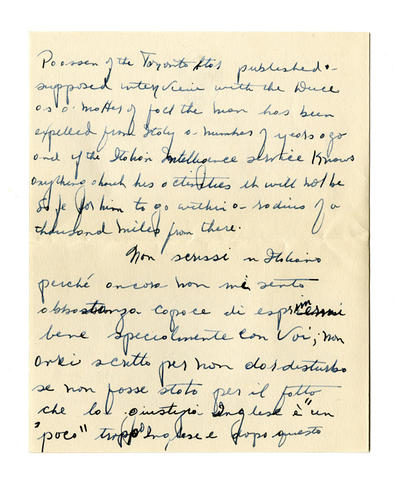 Poassen of the Toronto Star published a
supposed interview with the Duce
as a matter of fact the man has been
expelled from Italy a number of years ago
and if the Italian Intelligence service knows
anything about his activities it will not be
safe for him to go within a radius of a
thousand miles from there.
Non scrissi in Italiano
perché ancora non mi sento
abbastanza capace di esprimermi
bene specialmente con Voi; non
avrei scritto per non dar disturbo
se non fosse stato per il fatto
che la giustizia Inglese è "un
poco" troppo Inglese e dopo questo